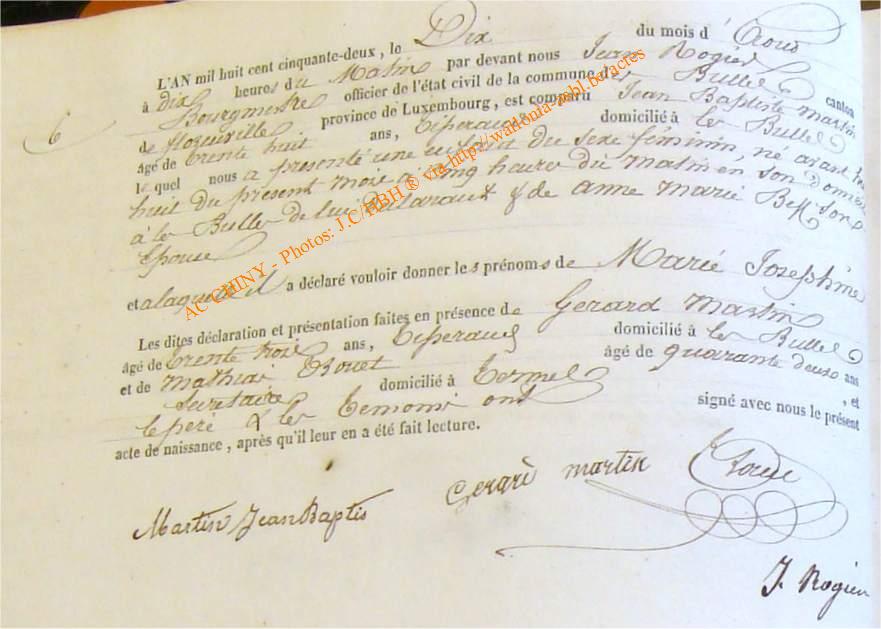 6
L'AN mil huit cent cinquante-deux, le Dix du mois d' Aout
à dix heures du Matin par devant nous Jean Rogier
Bourgmestre officier de l'état civil de la commune de les Bulles canton
de florenville province de Luxembourg, est comparu Jean Baptiste martin
âgé de trente huit ans, domicilié à les Bulles
le quel nous a présenté une enfant du sexe féminin, né
huit du présent mois à cinq heures du matin en son
à les Bulles de lui & de anne marie son
Epouse
et alaquelle il a déclaré vouloir donner les prénoms de Marie Josephine
Les dites déclaration et présentation faites en présence de Gerard Martin
âgé de trente trois ans, domicilié à les Bulles
et de mathiai âgé de quarante deux ans
Secretaire domicilié à termes , et
le pere & les temoins ont signé avec nous le présent
acte de naissance, après qu'il leur en a été fait lecture.
Martin Jean Baptis
Gerard martin
J. Rogier
AC CHINY - Photos: J.C/HBH ® via http://wallonia-asbl.be/actes